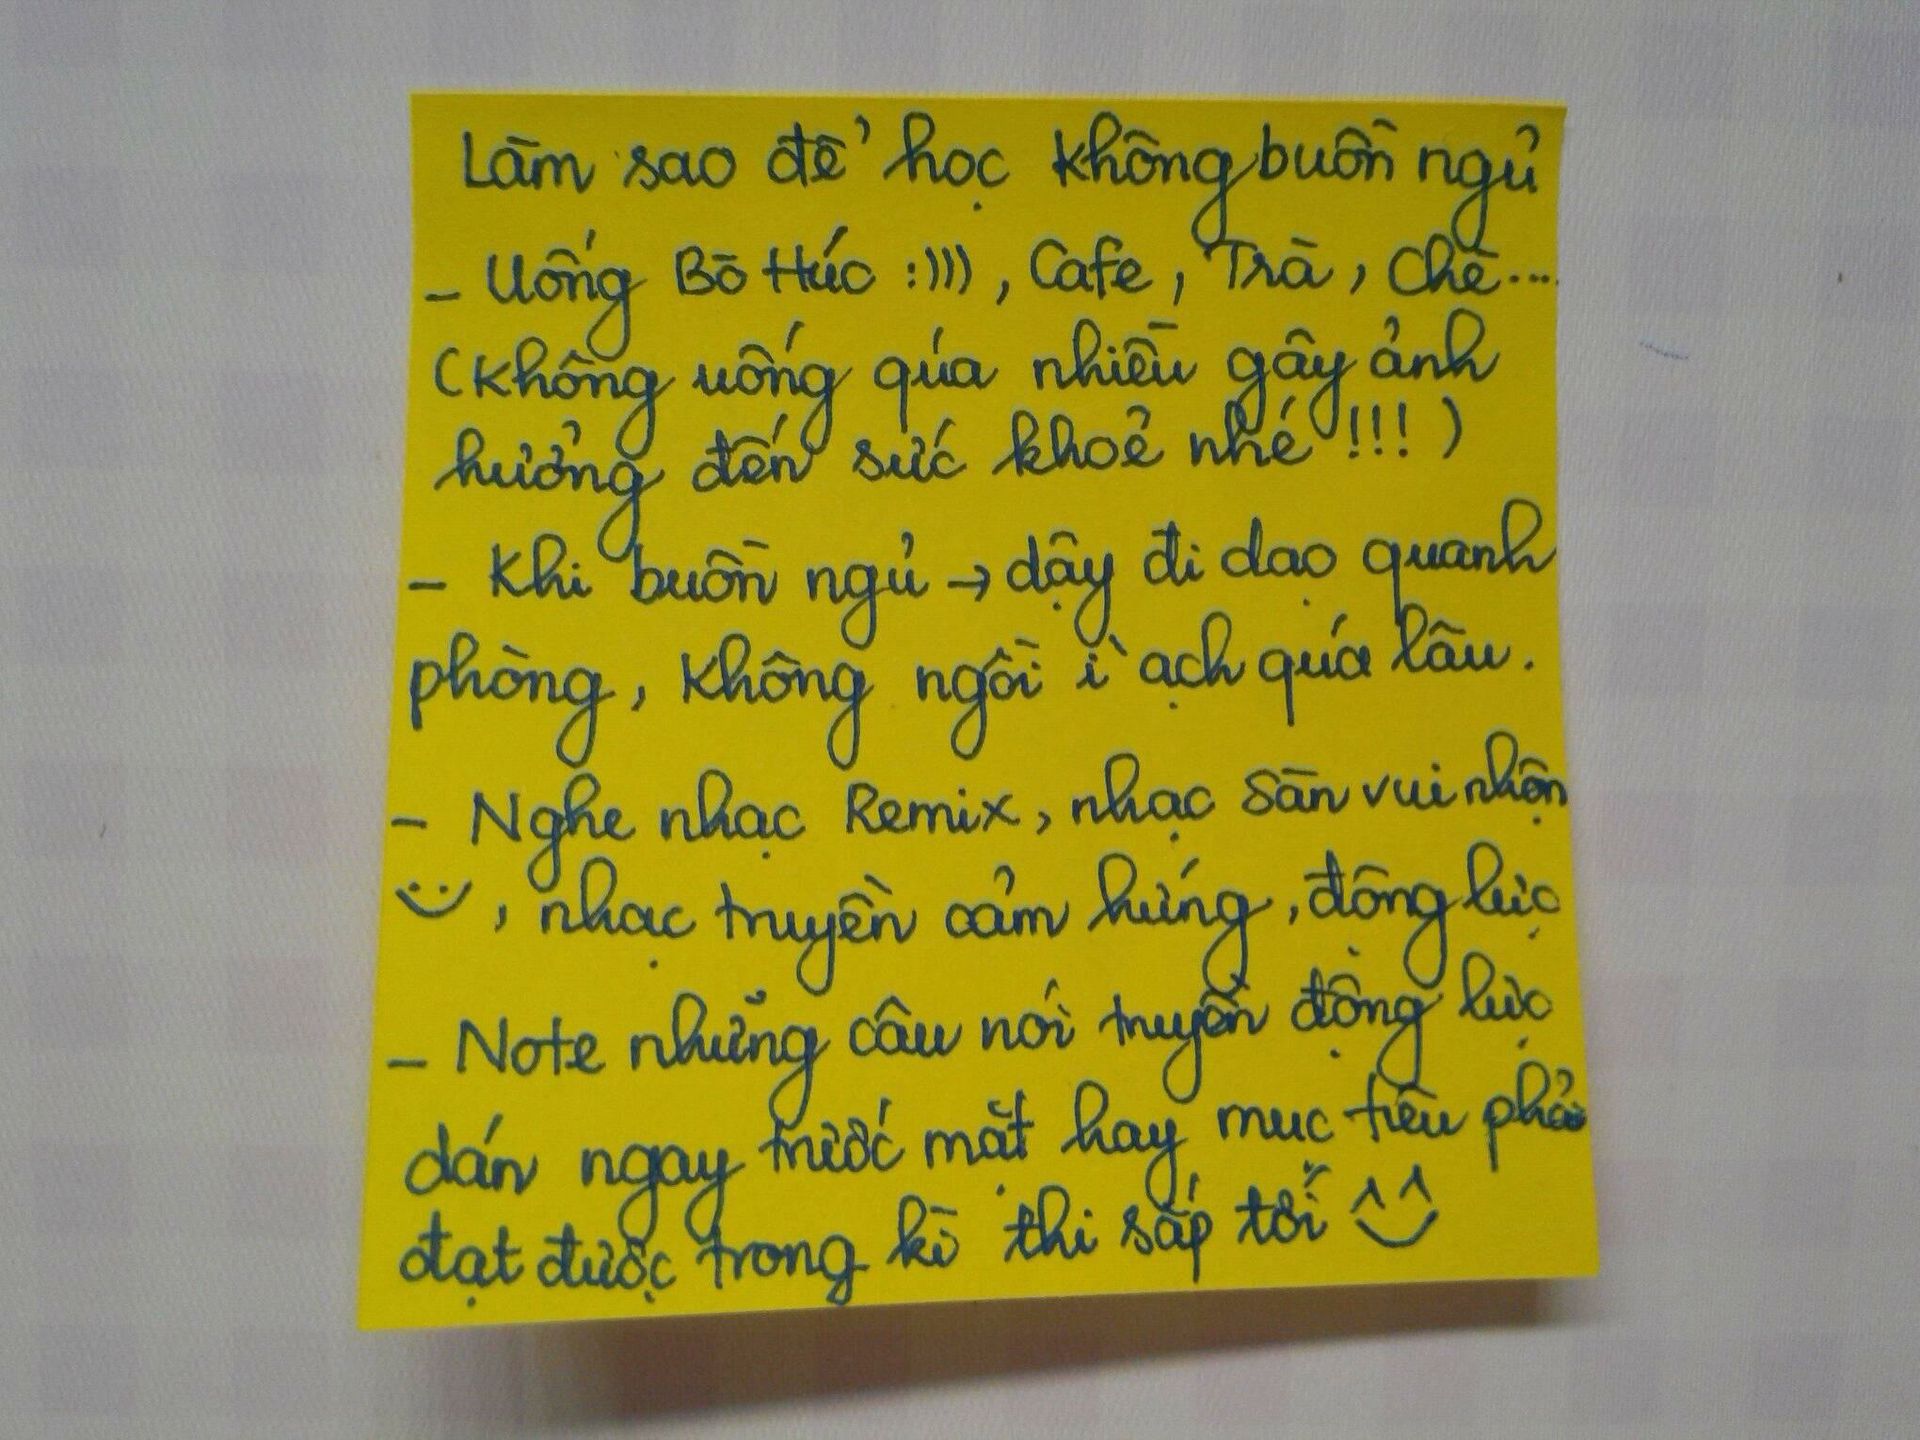 Làm sao để học không buồn ngủ
- Uống Bò Húc :))), Cafe, Trà, Chè...
(Không uống qúa nhiều gây ảnh
hưởng đến sức khoẻ nhé !!!)
- Khi buồn ngủ → dậy đi dạo quanh
phòng, không ngồi ì ạch qúa lâu.
- Nghe nhạc Remix, nhạc sàn vui nhộn
, nhạc truyền cảm hứng, động lực
- Note những câu nói truyền động lực
dán ngay trước mặt hay mục tiêu phải
đạt được trong kì thi sắp tới ^^